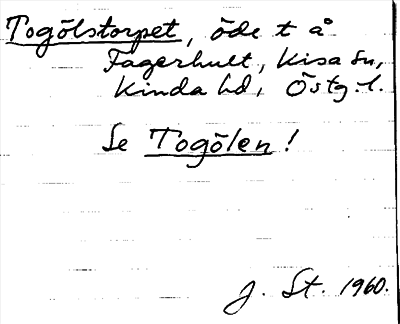 Togölstorpet, öde t å
Fagerhult, Kisa sn,
Kinda hd, Östg.-l.
Se Togölen!
J. St. 1960.